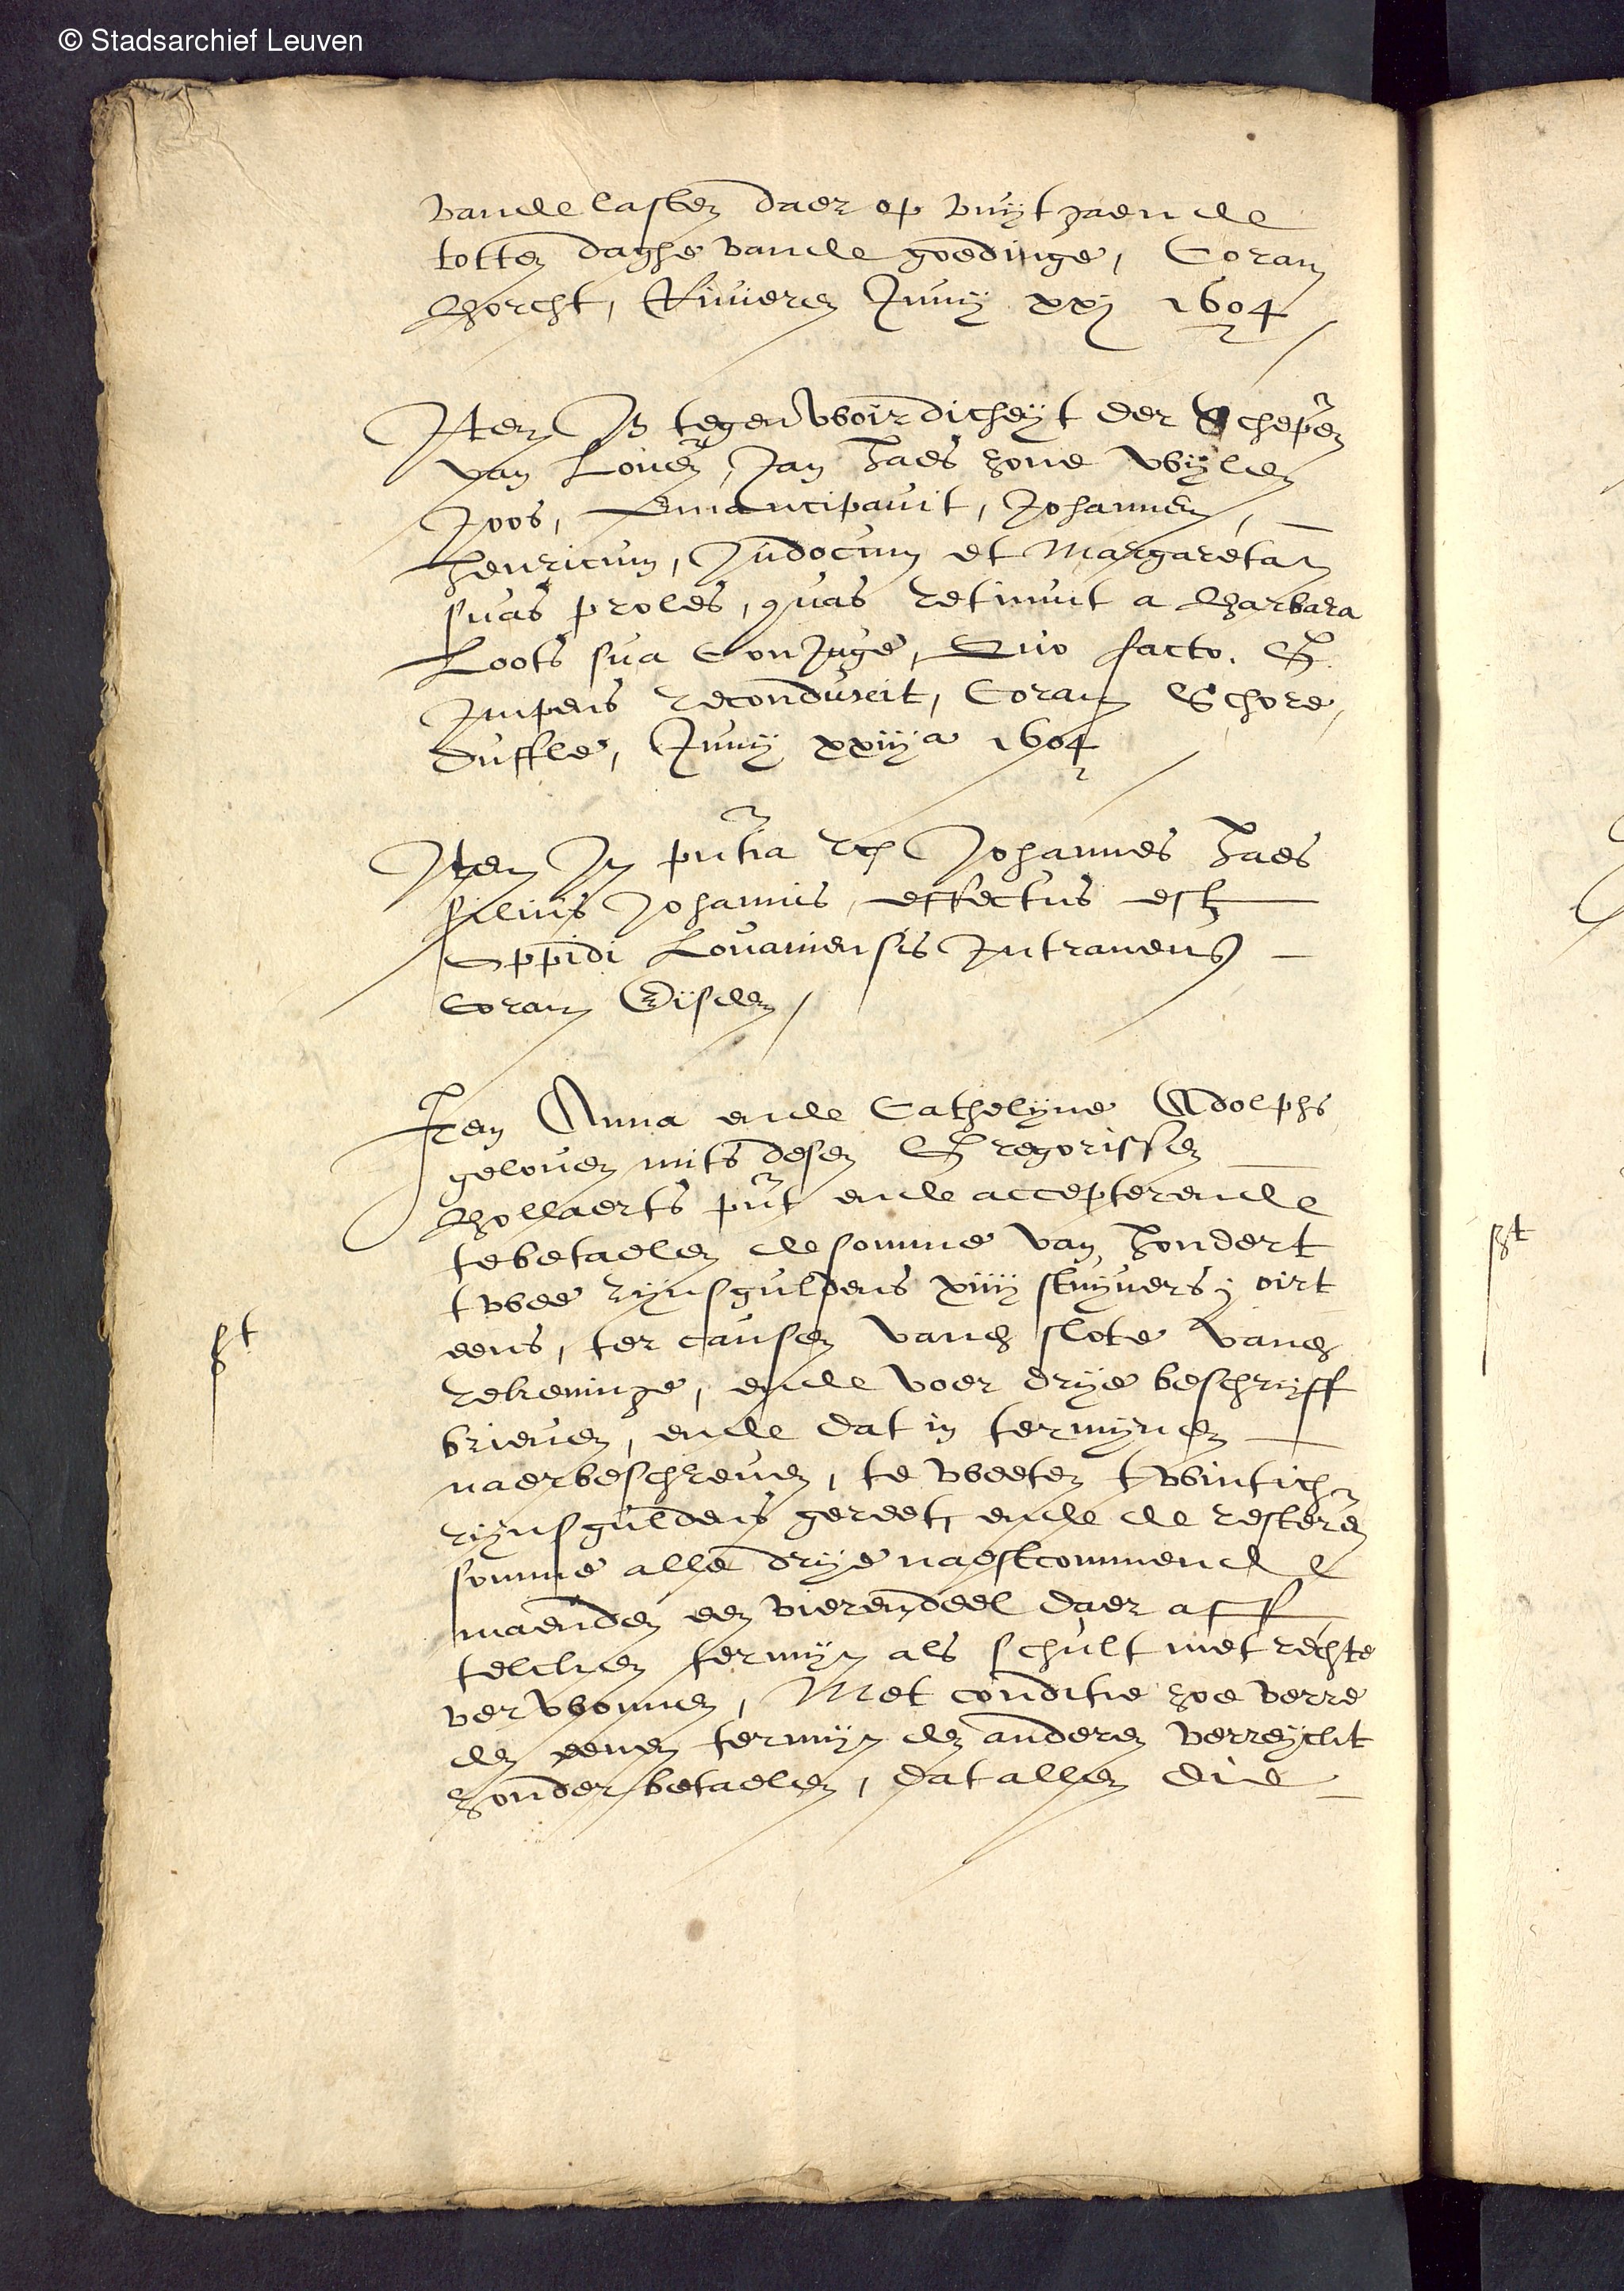 © Stadsarchief Leuven
vande lasten daer op vuytgaende
totten daghe vande goedinge, Coram
Borcht, Rivieren Juny xxj 1604
Item In tegenwoirdicheyt der Schepen
van Loven, Jan Haes zone wylen
Joos, Emancipavit, Johannem,
Henricum, Judocum et Margaretam
suas proles, quas retinuit a Barbara
Loots sua Conjuge, Quo facto. S
Impens reconduxit, Coram Schore,
Duffle, Juny xxiiija 1604
Item In pntia Johannes Haes
filius Johannis, effectus est
Oppidi Lovaniensis Intraneus
Coram Eisden
Item Anna ende Cathelyne Adolphs
geloven mits desen Gregorissen
Bollaerts pnt ende accepterende
te betaelen de somme van hondert
twee rynsguldens xiiij stuyvers j oirt
eens, ter causen vand slote vand
rekeninge, ende voer drye beschryff
brieven, ende dat in termynen
naerbeschreven, te weeten twintich
st
rynsguldens gereet, ende de resteren
somme alle drye naestcommende
maenden een vierendeel daer aff
telcken termyn als schult met rechte
verwonnen, Met conditie zoe verre
den eenen termyn den anderen verreyckt
zonder betaelen, dat allen die
st